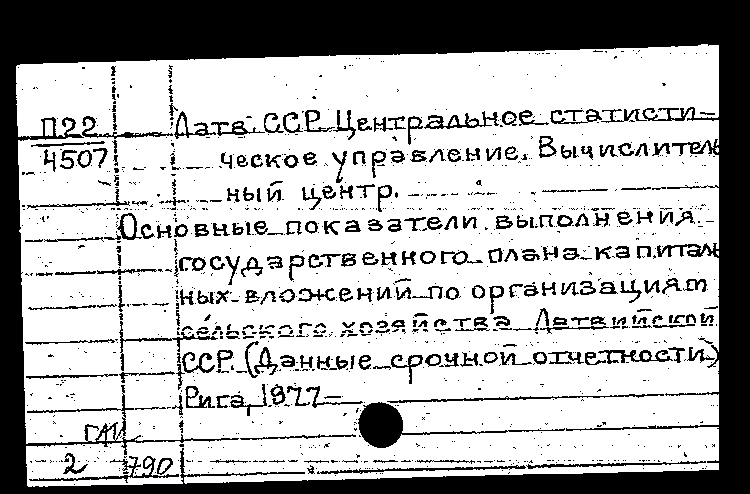 П22
4507
Латв. ССР. Центральное статисти-
ческое управление. Вычислитель
ный центр.
Основные показатели выполнения
государственного плана капиталь
ных вложений по организациям
сельского хозяйства Латвийской
ССР. (Данные срочной отчетности)
Рига, 1977-
2 790